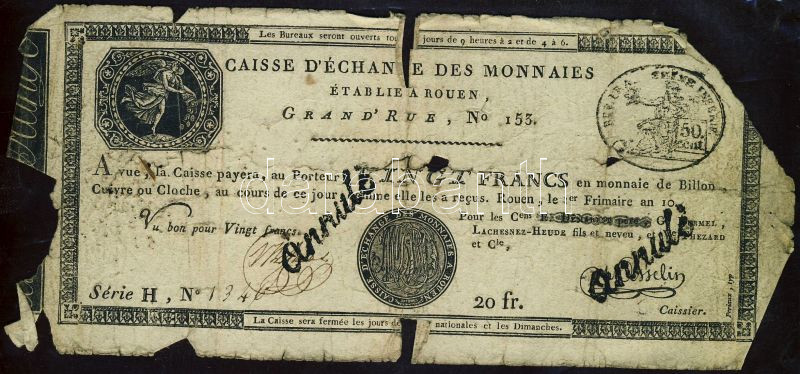 Les Bureaux seront ouverts tou jours de 9 heures à 2 et de 4 à 6.
CAISSE D'ÉCHAN E DES MONNAIES
ÉTABLIE A ROUEN,
GRAND'RUE, No 153.
50. cent.
A vue, la Caisse payera, au Porteur INGT FRANCS en monnaie de Billon
Cuivre ou Cloche, au cours de ce jour mme elle les a reçus. Rouen, le 1er Frimaire an 10.
Vu bon pour Vingt francs.
Pour les Cem RMEL,
LACHESNEZ-HEUDE fils et neveu, et HEZARD
et Cie,
annulé
annulé
CAISSE D'ÉCHANGE DES MONNAIES A ROUEN
Série H, No 134
20 fr.
sselin
Caissier.
La Caisse sera fermée les jours de nationales et les Dimanches.